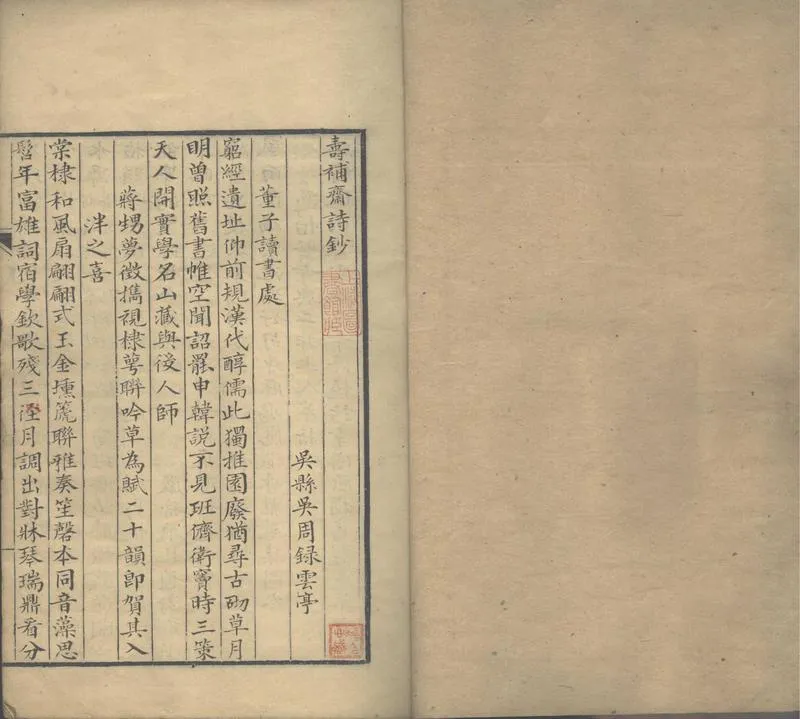 壽補齋詩鈔
吳縣吳周録雲亭
董子讀書處
窮經遺址仰前規漢代醇儒此獨推園廢猶尋古砌草月
明曾照舊書帷空聞詔罷申韓說不見班儕衛竇時三策
天人開實學名山藏與後人師
蔣甥夢徵攜視棣萼聯吟草為賦二十韻卽賀其入
泮之喜
棠棣和風扇翩翩式玉金壎箎聯雅奏笙磬本同音藻思
髫年富雄詞宿學欽歌殘三月調出對牀琴瑞鼎看分